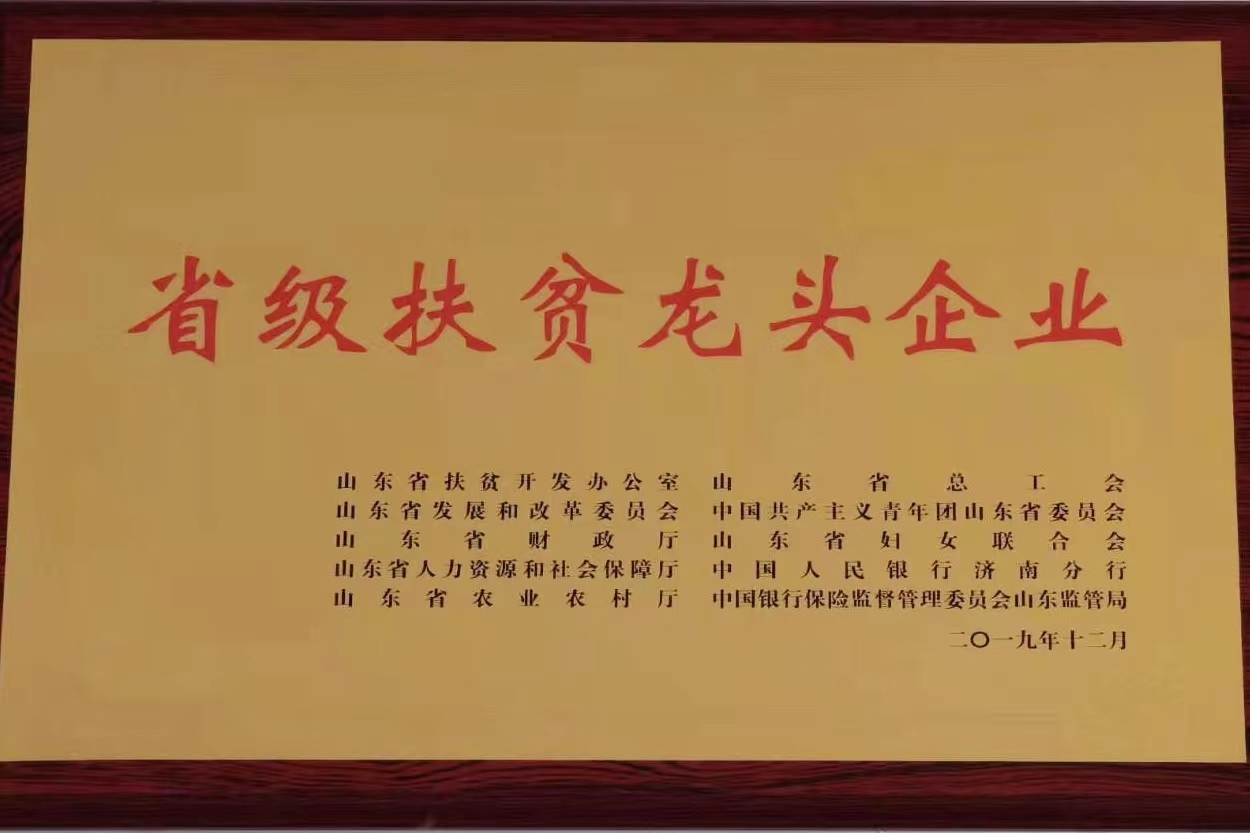 省级扶贫龙头企业
山东省扶贫开发办公室 山东省总工会
山东省发展和改革委员会 中国共产主义青年团山东省委员会
山东省财政厅 山东省妇女联合会
山东省人力资源和社会保障厅 中国人民银行济南分行
山东省农业农村厅 中国银行保险监督管理委员会山东监管局
二〇一九年十二月